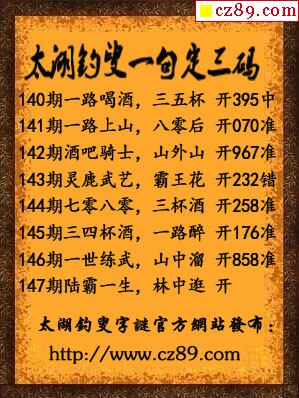 cz89.com
太湖钓叟一句定三码
140期一路喝酒，三五杯 开395中
141期一路上山，八零后 开070准
142期酒吧骑士，山外山 开967准
143期灵鹿武艺，霸王花 开232错
144期七零八零，三杯酒 开258准
145期三四杯酒，一路醉 开176准
146期一世练武，山中溜 开858准
147期陆霸一生，林中逛 开
太湖釣叟字謎官方網站發布：
http://www.cz89.com